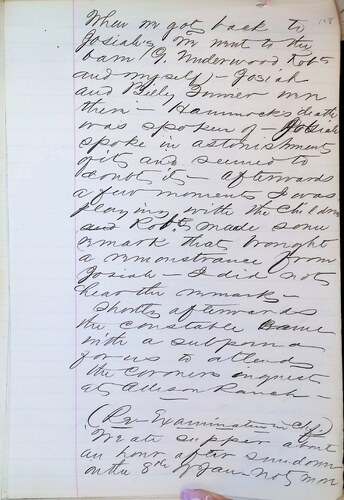 When we got back to
Josiah's we went to the
barn (G. Underwood Robts
and myself) - Josiah
and Billy Tonner were
there - Hammock's death
was spoken of - Josiah
spoke in astonishment
of it and seemed to
doubt it - afterwards
a few moments I was
playing with the children
and Robts made some
remark that brought
a remonstrance from
Josiah - I did not
hear the remark -
Shortly afterwards
the constable came
with a subpoena
for us to attend
the Coroners inquest
at Allison Ranch -
(Re-Examination Clf.)
We ate supper about
an hour after sundown
on the 8th of Jan. Not more